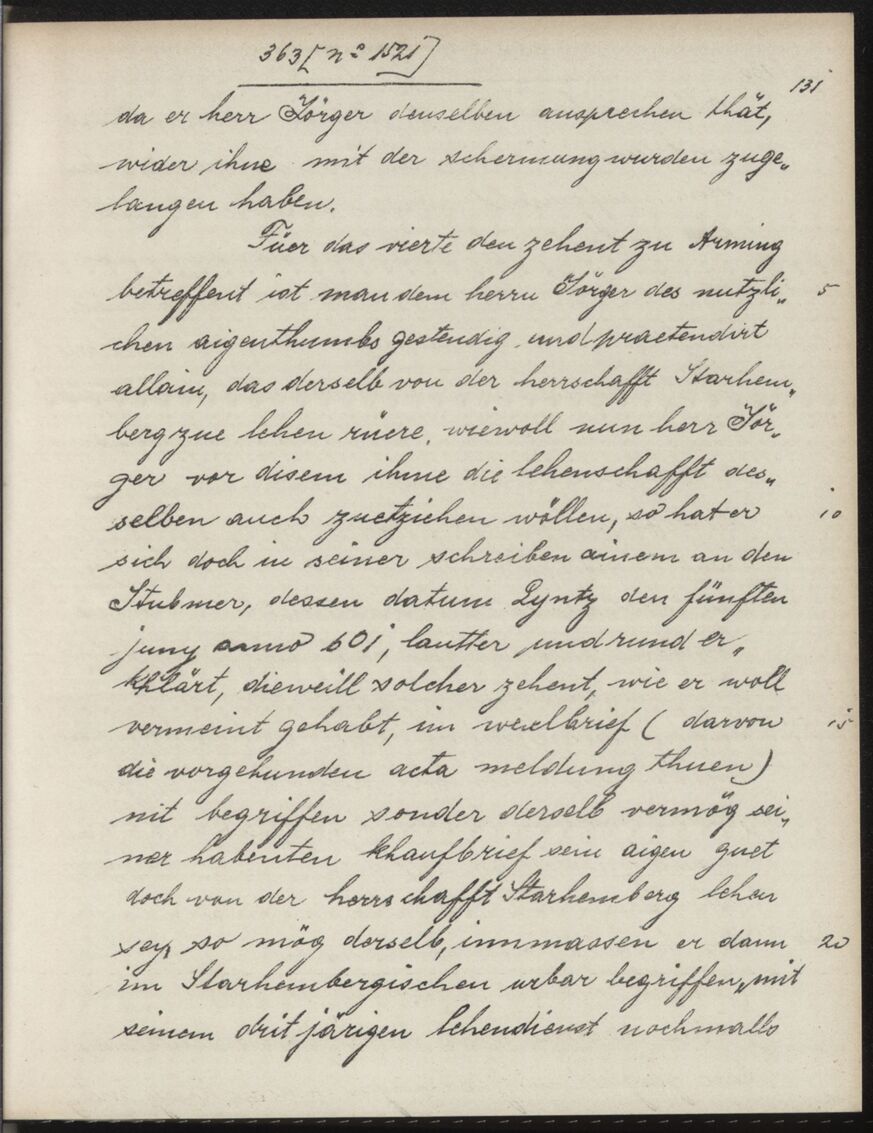 363 [nº 1521]
131
da er herr Jörger denselben ansprechen thät,
wider ihne mit der schermung wurden zuge„
langen haben.
Füer das vierte den zehent zu Arming
betreffent ist man dem herrn Jörger des nutzli„ 5
chen aigenthumbs gestendig und praetendirt
allain, das derselb von der herrschafft Starhem„
berg zue lehen rüere, wiewoll nun herr Jör„
ger vor disem ihme die lehenschafft des„
selben auch zuetziehen wöllen, so hat er 10
sich doch in seiner schreiben ainem an den
Stubmer, dessen datum Lyntz den fünften
juny anno 601, lautter und rund er„
khlärt, dieweill solcher zehent, wie er woll
vermeint gehabt, im wexlbrief (darvon 15
die vorgehunden acta meldung thuen)
nit begriffen sonder derselb vermög sei„
ner habenten khaufbrief sein aigen guet
doch von der herrschafft Starhemberg lehen
sey, so mög derselb, innmassen er dann 20
im Starhembergischen urbar begriffen, mit
seinem drit järigen lehendienst nochmalls